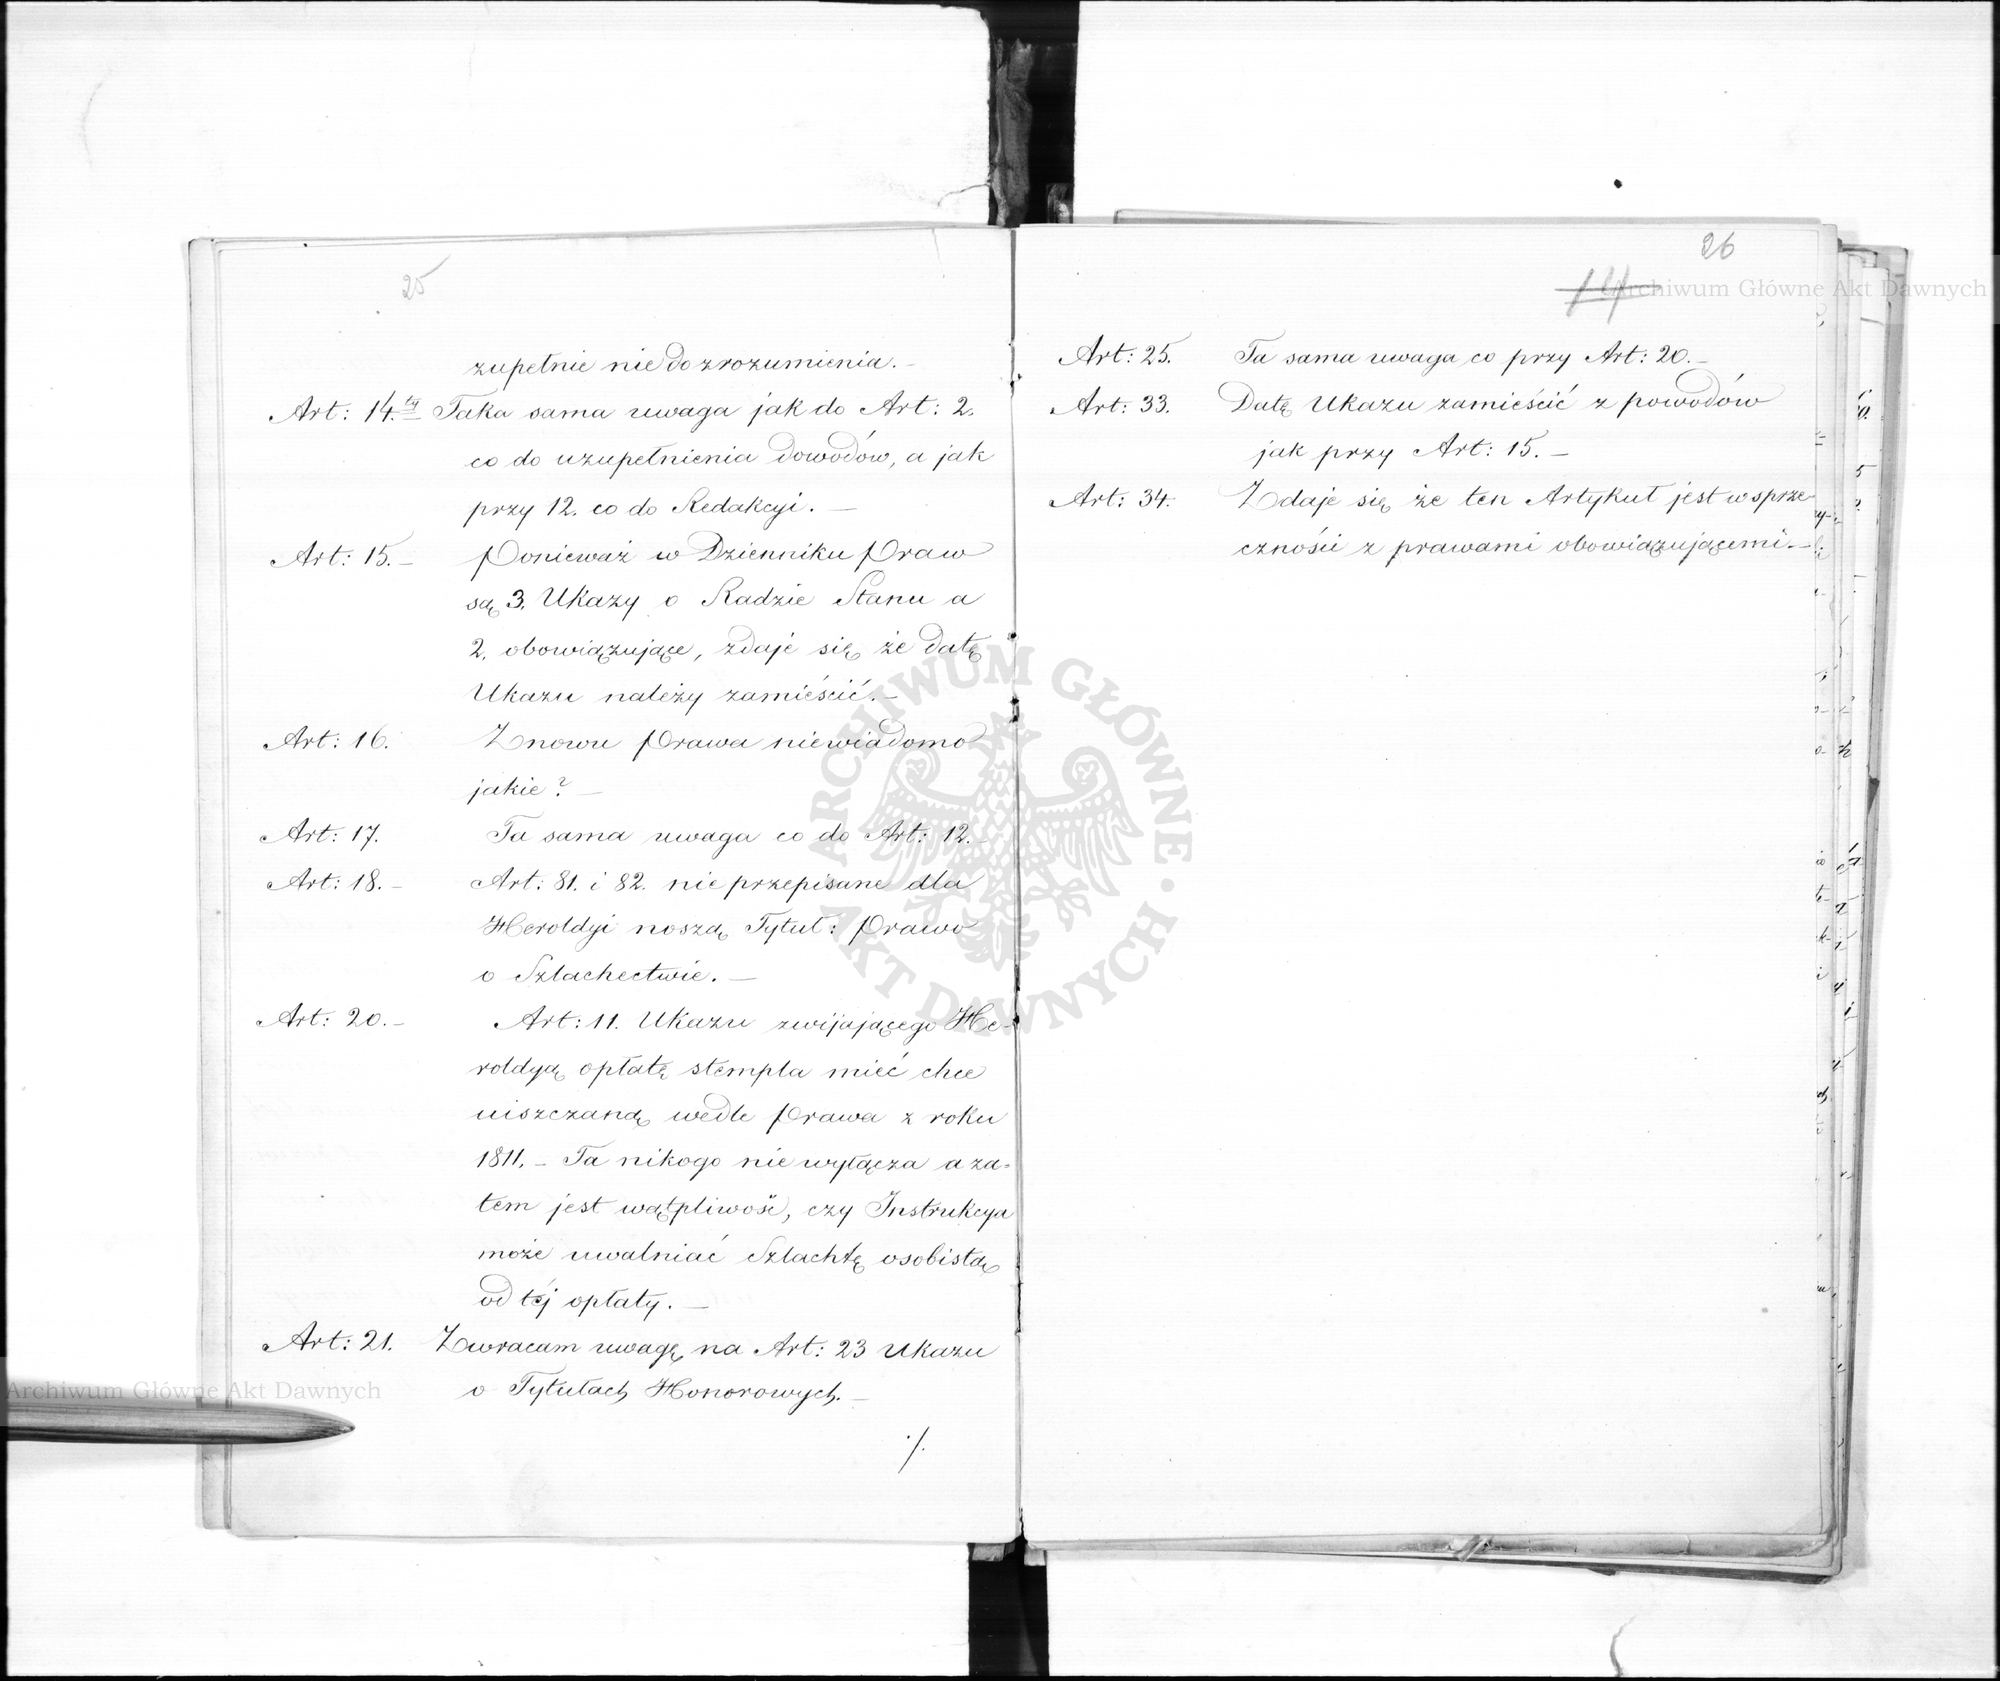 25
zupełnie nie do zrozumienia.-
Art: 14.ty Taka sama uwaga jak do Art: 2.
co do uzupełnienia dowodów, a jak
przy 12. co do Redakcyi. -
Art: 15.- Ponieważ w Dzienniku Praw
są 3. Ukazy o Radzie Stanu a
2. obowiązujące, zdaje się że datę
Ukazu należy zamieścić.-
Art: 16. Znowu Prawa niewiadomo
jakie? -
Art: 17. Ta sama uwaga co do Art: 12.-
Art: 18.- Art: 81. i 82. nie przepisane dla
Heroldyi noszą Tytuł: Prawo
o Szlachectwie. -
Art: 20.- Art: 11. Ukazu zwijającego He-
roldyą opłatę stempla mieć chce
uiszczaną wedle Prawa z roku
1811.- Ta nikogo nie wyłącza a za-
tem jest wątpliwość, czy Instrukcya
może uwalniać Szlachtę osobistą
od téj opłaty. -
Art: 21. Zwracam uwagę na Art: 23 Ukazu
o Tytułach Honorowych. -
./.
26
14
Art: 25. Ta sama uwaga co przy Art: 20.-
Art: 33. Datę Ukazu zamieścić z powodów
jak przy Art: 15. -
Art: 34. Zdaje się że ten Artykuł jest w sprze-
czności z prawami obowiązującemi.-
Archiwum Główne Akt Dawnych
ARCHIWUM GŁÓWNE AKT DAWNYCH
Archiwum Główne Akt Dawnych